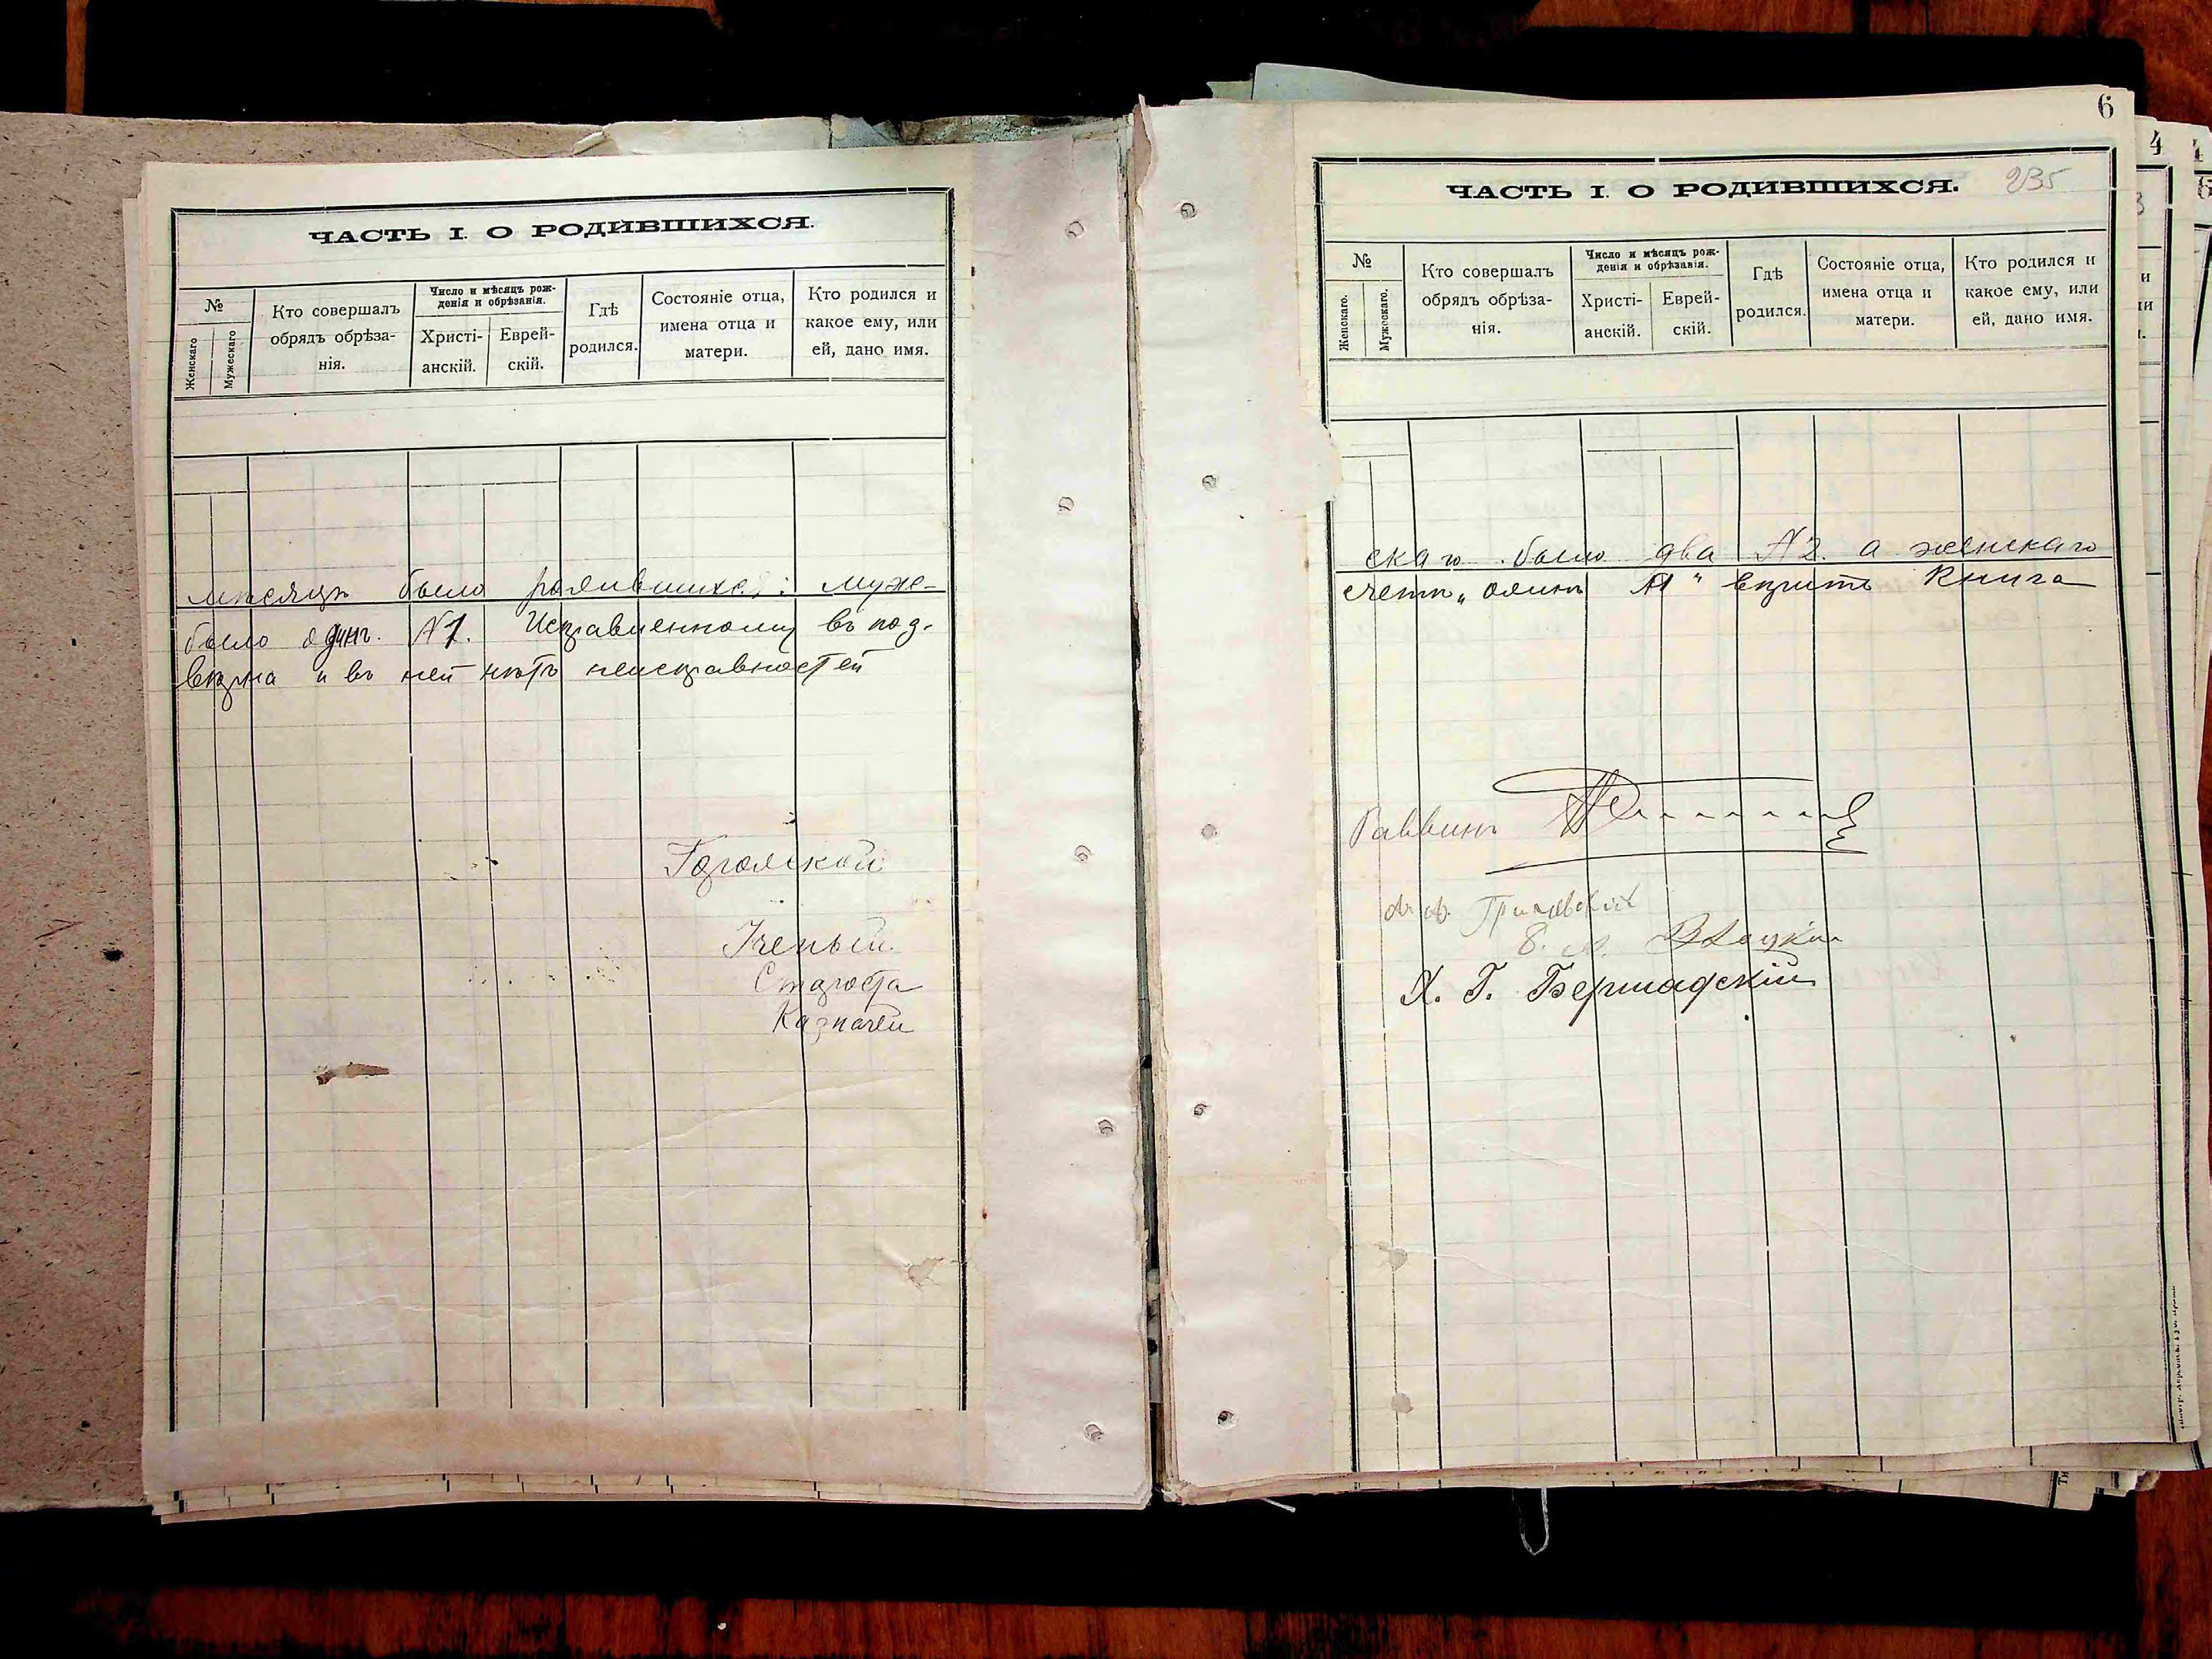 ЧАСТЬ I. О РОДИВШИХСЯ.
№
Женскаго
Мужескаго
Кто совершалъ
обрядъ обрѣза-
нія.
Число и мѣсяцъ рож-
денія и обрѣзанія.
Христі-
анскій.
Еврей-
скій.
Гдѣ
родился.
Состояніе отца,
имена отца и
матери.
Кто родился и
какое ему, или
ей, дано имя.
мѣсяцъ было родившихся: муже-
было одинъ. №1. Исправленному въ под-
вѣрна и въ ней нѣтъ неисправностей
Городской
Ученый
Староста
Казначей
6
ЧАСТЬ I. О РОДИВШИХСЯ.
235
№
Женскаго.
Мужескаго.
Кто совершалъ
обрядъ обрѣза-
нія.
Число и мѣсяцъ рож-
денія и обрѣзанія.
Христі-
анскій.
Еврей-
скій.
Гдѣ
родился.
Состояніе отца,
имена отца и
матери.
Кто родился и
какое ему, или
ей, дано имя.
скаго было два №2. а женскаго
счетъ „одинъ №1" вѣрить Книга
Раввинъ
Х. Г. Бершадскій
4